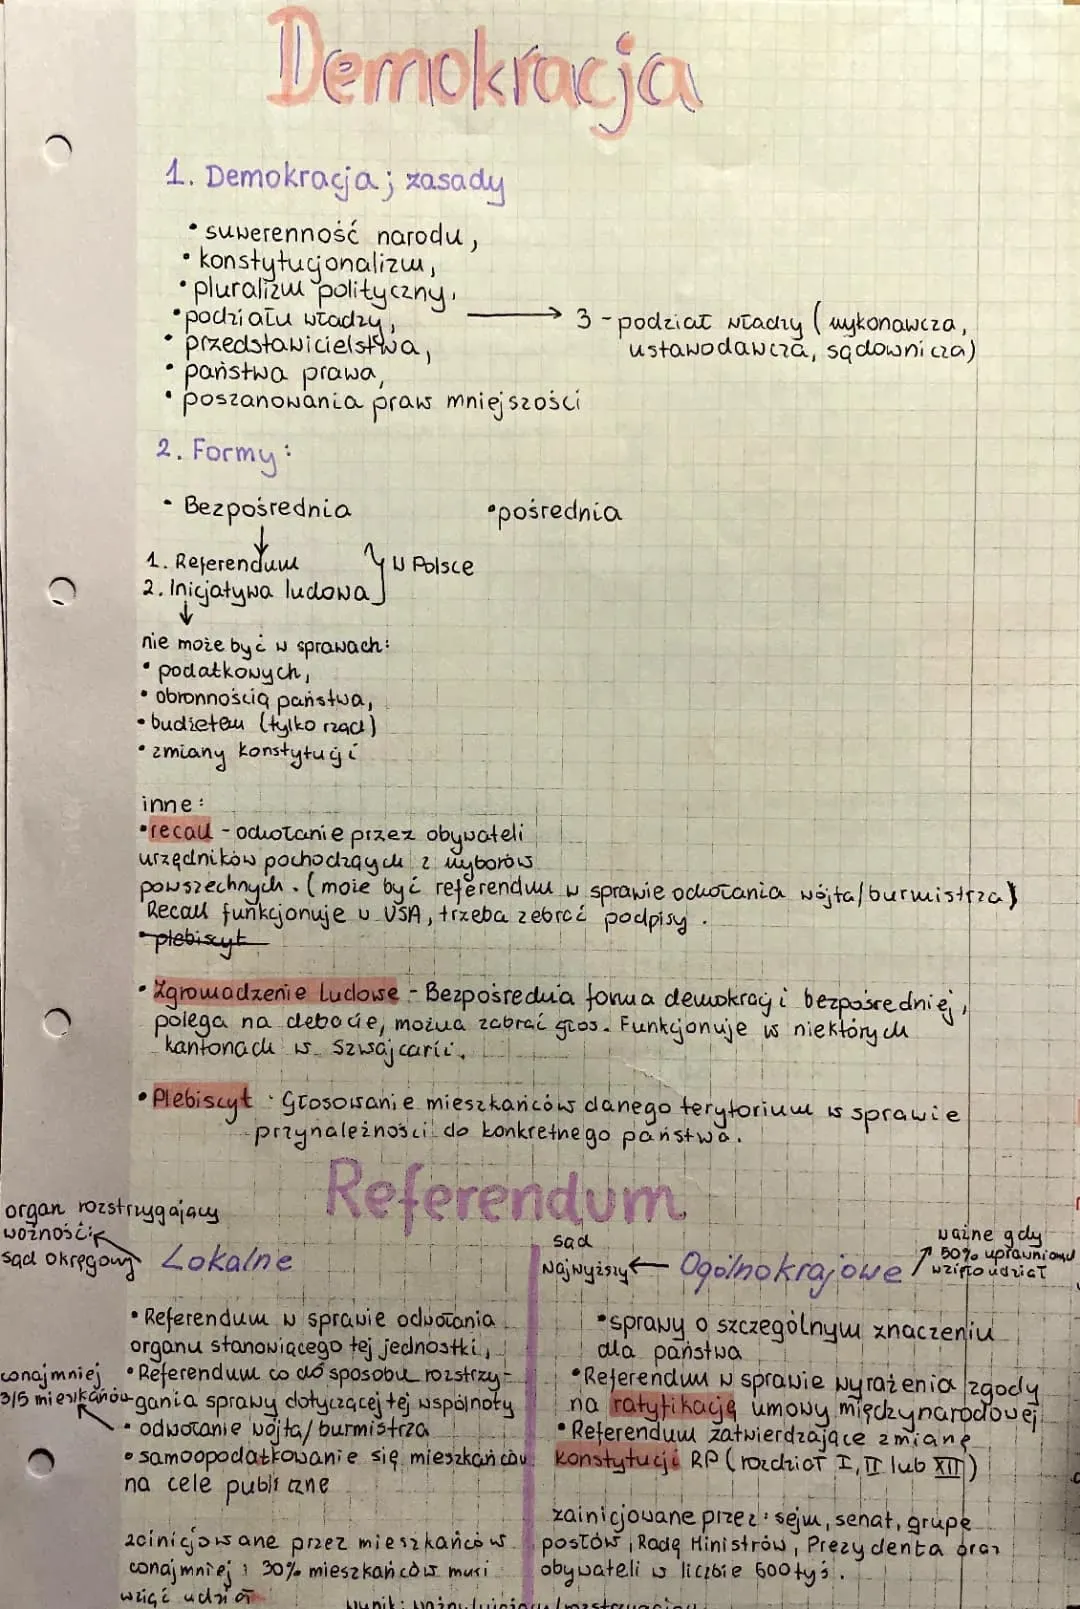 Demokracja
1. Demokracja; zasady
• suwerenność narodu,
• konstytucjonalizm,
• pluralizm polityczny,
• podziału władzy, → 3-podział władzy (wykonawcza,
ustawodawcza, sądownicza)
• przedstawicielstwa,
• państwa prawa,
• poszanowania praw mniejszości
2. Formy:
• Bezpośrednia • pośrednia
1. Referendum } w Polsce
2. Inicjatywa ludowa
nie może być w sprawach:
• podatkowych,
• obronnością państwa,
• budżetem (tylko rząd)
• zmiany konstytucji
inne:
• recall - odwołanie przez obywateli
urzędników pochodzących z wyborów
powszechnych. (może być referendum w sprawie odwołania wójta/burmistrza)
Recall funkcjonuje w USA, trzeba zebrać podpisy.
• plebiscyt
• Zgromadzenie Ludowe - Bezpośrednia forma demokracji bezpośredniej,
polega na debacie, można zabrać głos. Funkcjonuje w niektórych
kantonach w Szwajcarii.
• Plebiscyt - Głosowanie mieszkańców danego terytorium w sprawie
przynależności do konkretnego państwa.
Referendum
organ rozstrzygający
ważność:
sąd okręgowy
Lokalne
• Referendum w sprawie odwołania
organu stanowiącego tej jednostki,
• Referendum co do sposobu rozstrzy-
gania sprawy dotyczącej tej wspólnoty
conajmniej
3/5 mieszkańców
• odwołanie wójta/burmistrza
• samoopodatkowanie się mieszkańców
na cele publiczne
zainicjowane przez mieszkańców
conajmniej: 30% mieszkańców musi
wziąć udział
sąd
Najwyższy ← Ogólnokrajowe
ważne gdy
50% uprawnionych
wzięło udział
• sprawy o szczególnym znaczeniu
dla państwa
• Referendum w sprawie wyrażenia zgody
na ratyfikację umowy międzynarodowej
• Referendum zatwierdzające zmianę
konstytucji RP (rozdział I, II lub XII)
zainicjowane przez: sejm, senat, grupę
posłów, Radę Ministrów, Prezydenta oraz
obywateli w liczbie 500 tyś.
wynik: